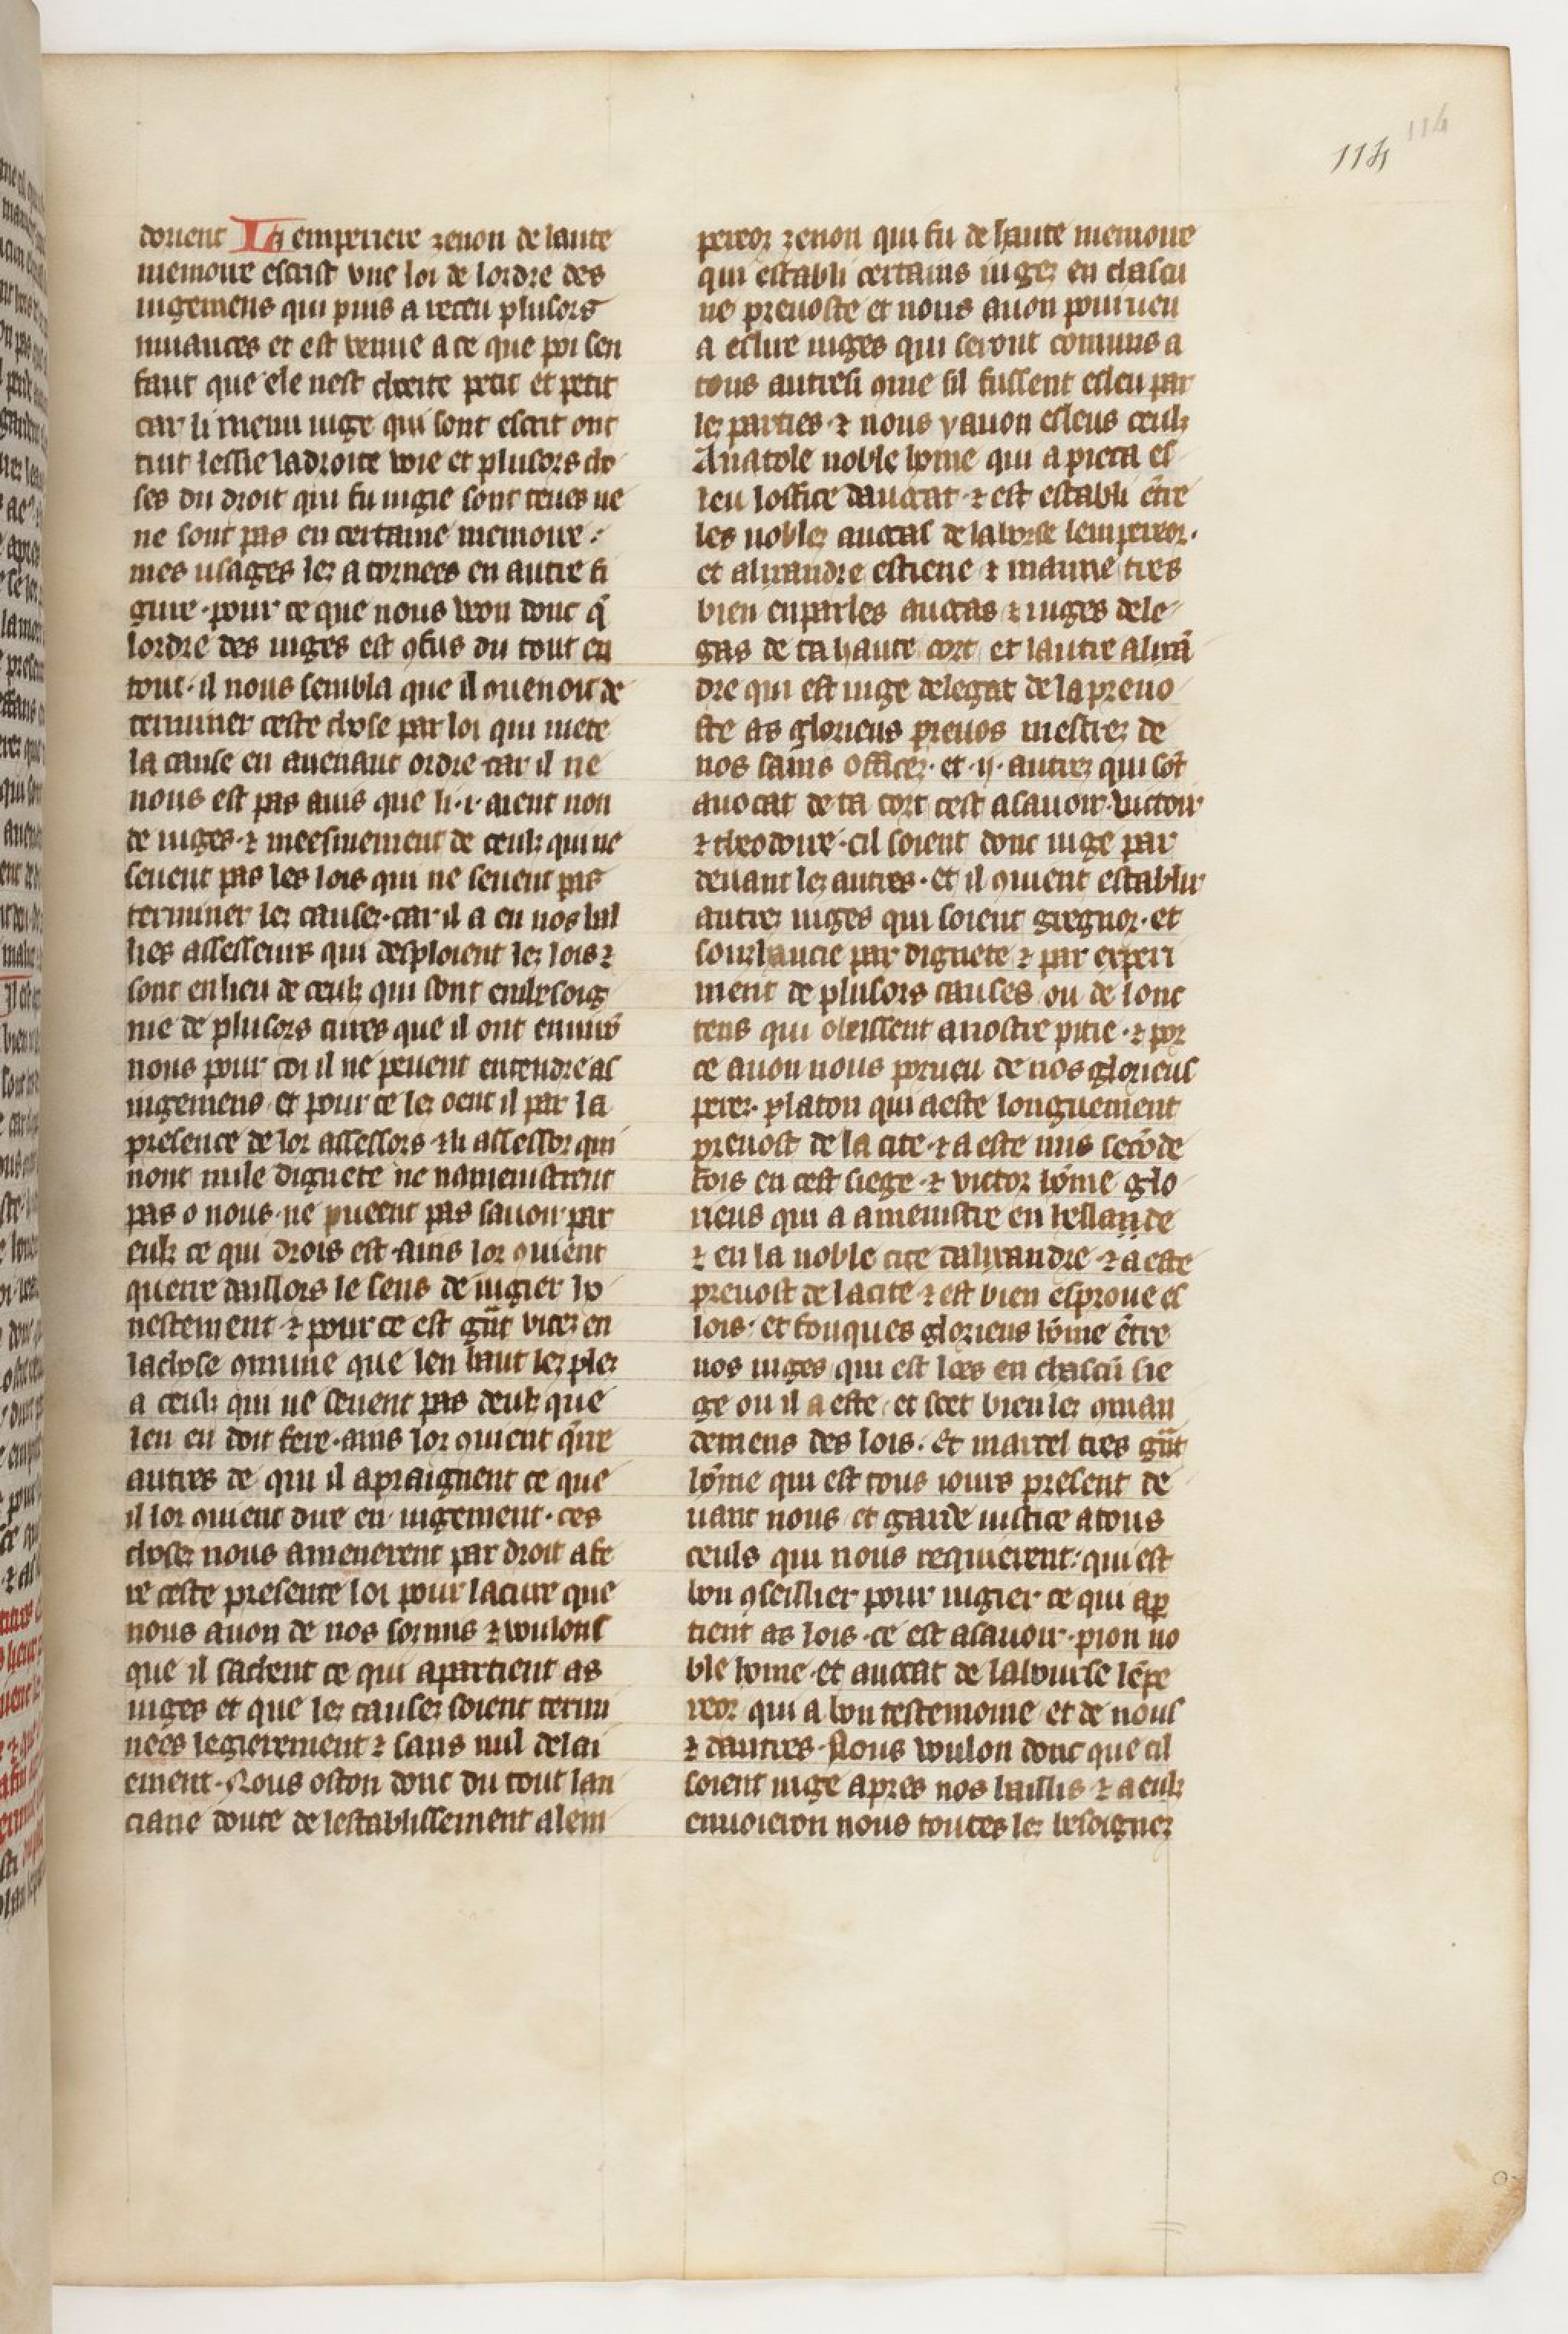 114
114
doiuent Li emperiere zenon de haute
memoire escrist vne loi de lordre des
iugemens qui puis a receu plusors
muances et est venue a ce que poi sen
faut que ele nest cheeite petit et petit
car li menu iuge qui sont escrit ont
tuit lessie ladroite voie et plusors cho
ses du droit qui fu iugie sont teues ne
ne sont pas en certaine memoire
mes usages lez a tornees en autre fi
gure · pour ce que nous veon donc q̃
lordre des iuges est 9fus du tout en
tout · il nous sembla que il 9uenoit de
terminer ceste chose par loi qui mete
la cause en auenant ordre car il ne
nous est pas auis que li · i · aient non
de iuges · ⁊ meesmement de ceulz qui ne
seuent pas les lois qui ne seuent pas
terminer lez causez · car il a en nos bal
lies assesseurs qui desploient lez lois ⁊
sont en lieu de ceulz qui sont enbesoig
nie de plusors cures que il ont enuirõ
nous pour coi il ne peuent entendre as
iugemens et pour ce lez oent il par la
presence de lor assessors ⁊ li assessor qui
nont nule dignete ne namenistrent
pas o nous · ne pueent pas sauoir par
eulz ce qui drois est · ains lor 9uient
querre daillors le sens de iugier ho
nestement · ⁊ pour ce est gñt vicez en
lachose 9mune que len baut lez plez
a ceulz qui ne seuent pas ceulz que
len en doit fere · ains lor 9uient q̃rre
autres de qui il apraignent ce que
il lor 9uient dire en iugement · ces
chosez nous amenerent par droit afe
re ceste presente loi pour lacure que
nous auon de nos sormis ⁊ voulons
que il sachent ce qui apartient as
iuges et que lez causez soient termi
nees legierement ⁊ sans nul delai
ement · Nous oston donc du tout lan
ciane doute de lestablissement alem
pereor zenon qui fu de haute memoire
qui establi certains iugez en chascu
ne preuoste et nous auon pourueu
a eslire iuges qui seront comuns a
tous autresi 9me sil fussent esleu par
lez parties · ⁊ nous y auon esleus ceulz
Anatole noble home qui a pieca es
leu loffice dauocat · ⁊ est establi ẽtre
les noblez auocas de laborse lempereor ·
et alixandre estiene ⁊ maune tres
bien enparles auocas ⁊ iuges dele
gas de ta haute cort et lautre alixã
dre qui est iuge delegat de la preuo
ste as glorieus preuos mestrez de
nos sains officez · et · ij · autrez qui sõt
auocat de ta cort cest asauoir · victoir
⁊ theodoire · cil soient donc iuge par
deuant lez autres · et il 9uient establir
autrez iuges qui soient gregnor · et
sourhaucie par dignete ⁊ par experi
ment de plusors causes ou de lonc
tens qui obeissent a nostre pitie · ⁊ por
ce auon nous porueu de nos glorieus
perez · platon qui a este longuement
preuost de la cite · ⁊ a este mis secõde
fois en cest siege · ⁊ victor hõme glo
rieus qui a amenistre en hellande
⁊ en la noble cite dalixandre · ⁊ a este
preuost de lacite ⁊ est bien esproue es
lois · et fouques glorieus hõme ẽtre
nos iuges qui est loes en chascũ sie
ge ou il a este et scet bien lez 9man
demens des lois · et martel tres gñt
hõme qui est tous iours present de
uant nous et garde iustice a tous
ceuls qui nous requierent · qui est
bon 9seillier pour iugier ce qui ap̱
tient as lois · ce est asauoir · pion no
ble home · et auocat de labourse lẽpe
reor qui a bon testemoine et de nous
⁊ dautres · Nous voulon donc que cil
soient iuge apres nos baillis ⁊ a eulz
enuoieron nous toutes lez besoignez